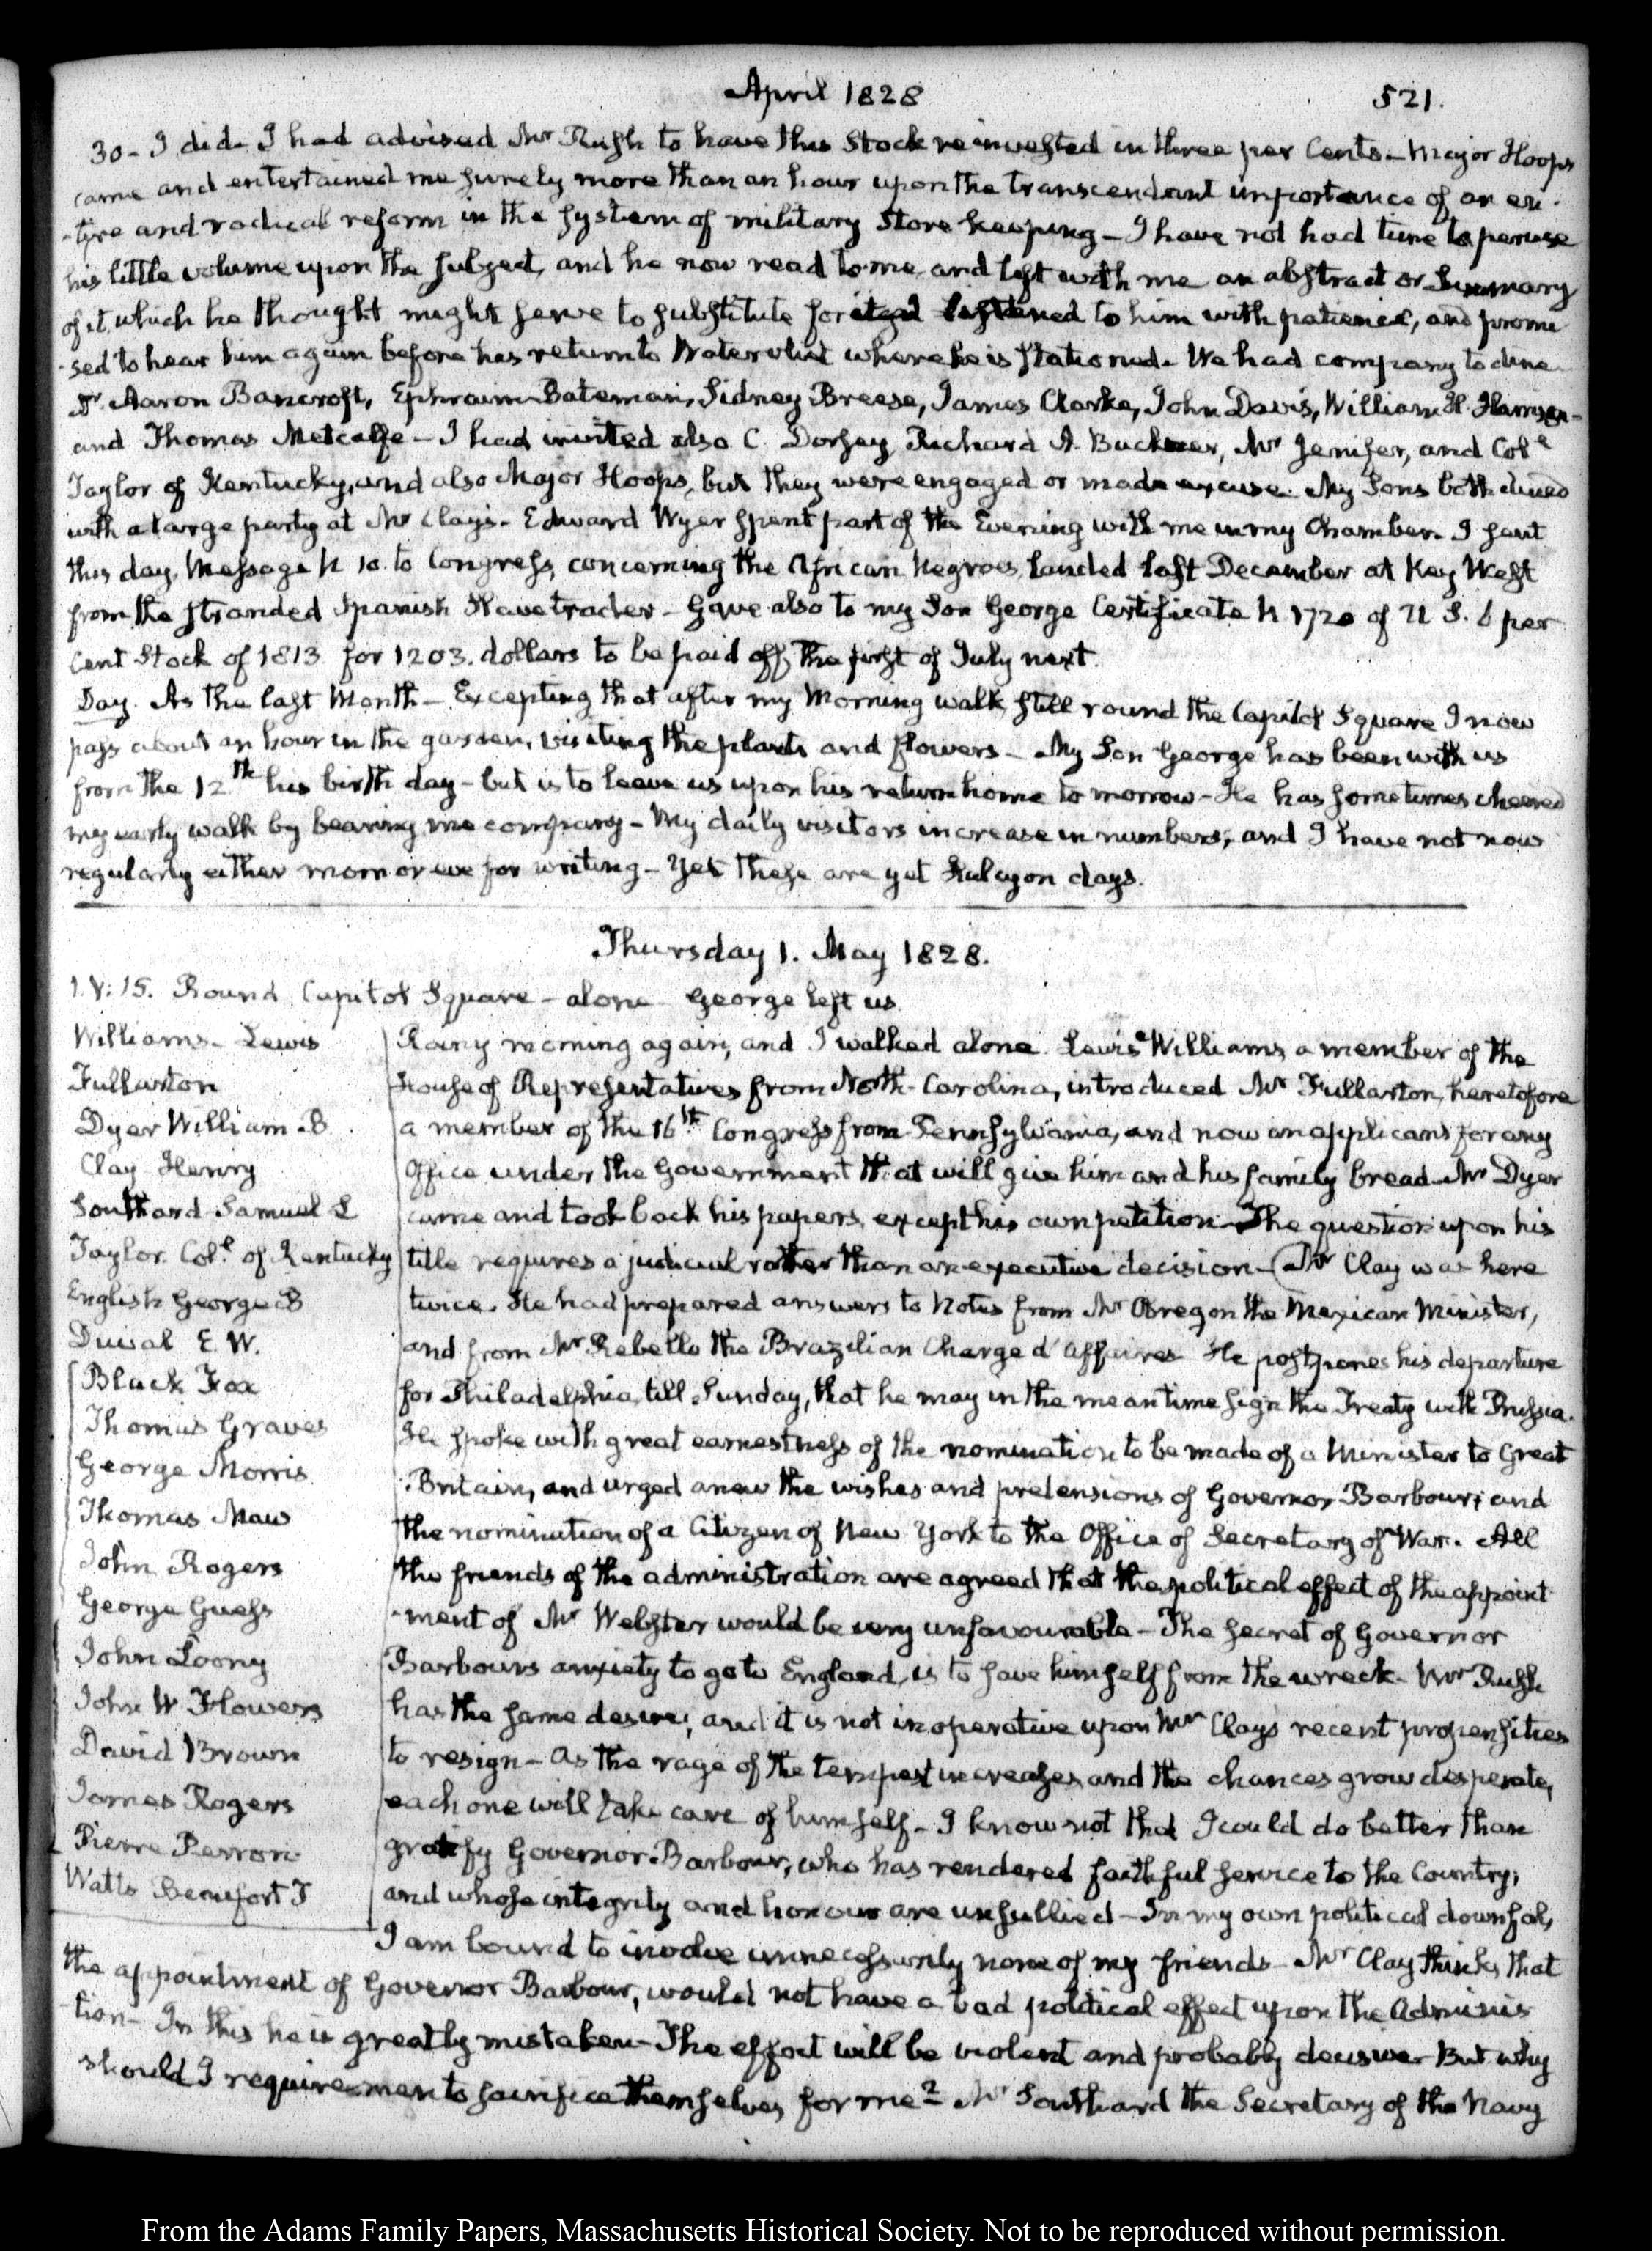 April 1828
521.
30 - I did. I had advised Mr Rush to have this Stock reinvested in three per Cents. - Major Hoops
came and entertained me surely more than an hour upon the transcendant importance of an en-
-tire and radical reform in the system of military Store keeping - I have not had time to peruse
his little volume upon the subject, and he now read to me and left with me an abstract or Summary
of it, which he thought might serve to substitute for it. I listened to him with patience, and promi
-sed to hear him again before his return to Watervliet where he is stationed. We had company to dine
Dr. Aaron Bancroft, Ephraim Bateman, Sidney Breese, James Clarke, John Davis, William H. Harrison -
and Thomas Metcalfe - I had invited also C. Dorsey, Richard A. Buckner, Mr Jenifer, and Col.e
Taylor of Kentucky, and also Major Hoops, but they were engaged or made excuse. My Sons both dined
with a large party at Mr Clay's - Edward Wyer spent part of the Evening with me in my Chamber. I sent
this day, Message N 10. to Congress, concerning the African Negroes, landed last December at Key West
from the stranded Spanish Slave trader - Gave also to my Son George Certificate N. 1720 of U S. 6 per
Cent Stock of 1813 for 1203. dollars to be paid off, the first of July next.
Day. As the last Month - Excepting that after my Morning walk still round the Capitol Square I now
pass about an hour in the garden, visiting the plants and flowers - My Son George has been with us
from the 12.th his birth day - but is to leave us upon his return home to morrow - He has sometimes cheered
my early walk by bearing me company - My daily visitors increase in numbers, and I have not now
regularly either morn or eve for writing - Yet these are yet Halcyon days.
Thursday 1. May 1828.
1. V: 15. Round Capitol Square - alone George left us
Williams - Lewis
Fullarton
Dyer William B
Clay Henry
Southard Samuel L
Taylor. Col.e of Kentucky
English George B
Duval E. W.
Black Fox
Thomas Graves
George Morris
Thomas Maw
John Rogers
George Guess
John Loony
John W Flowers
David Brown
James Rogers
Pierre Perron
Watts Beaufort T
Rainy morning again, and I walked alone. Lewis Williams a member of the
House of Representatives from North-Carolina, introduced Mr Fullarton, heretofore
a member of the 16th Congress from Pennsylvania, and now an applicant for any
Office under the Government that will give him and his family bread. Mr Dyer
came and took back his papers, except his own petition - The question upon his
title requires a judicial rather than an executive decision - Mr Clay was here
twice. He had prepared answers to Notes from Mr Obregon the Mexican Minister,
and from Mr Rebello the Brazilian Charge d'affaires He postpones his departure
for Philadelphia, till Sunday, that he may in the mean time sign the Treaty with Prussia.
He spoke with great earnestness of the nomination to be made of a Minister to Great
Britain, and urged anew the wishes and pretensions of Governor Barbour; and
the nomination of a Citizen of New York to the Office of Secretary of War. All
the friends of the administration are agreed that the political effect of the appoint
-ment of Mr Webster would be very unfavourable - The secret of Governor
Barbours anxiety to go to England, is to save himself from the wreck - Mr Rush
has the same desire, and it is not inoperative upon Mr Clays recent propensities
to resign - As the rage of the tempest increases and the chances grow desperate,
each one will take care of himself - I know not that I could do better than
gratify Governor Barbour, who has rendered faithful service to the Country,
and whose integrity and honour are unsullied - In my own political downfal,
I am bound to involve unnecessarily none of my friends - Mr Clay thinks that
the appointment of Governor Barbour, would not have a bad political effect upon the Adminis
-tion - In this he is greatly mistaken - The effect will be violent and probably decisive - But why
should I require men to sacrifice themselves for me? Mr Southard the Secretary of the Navy
From the Adams Family Papers, Massachusetts Historical Society. Not to be reproduced without permission.